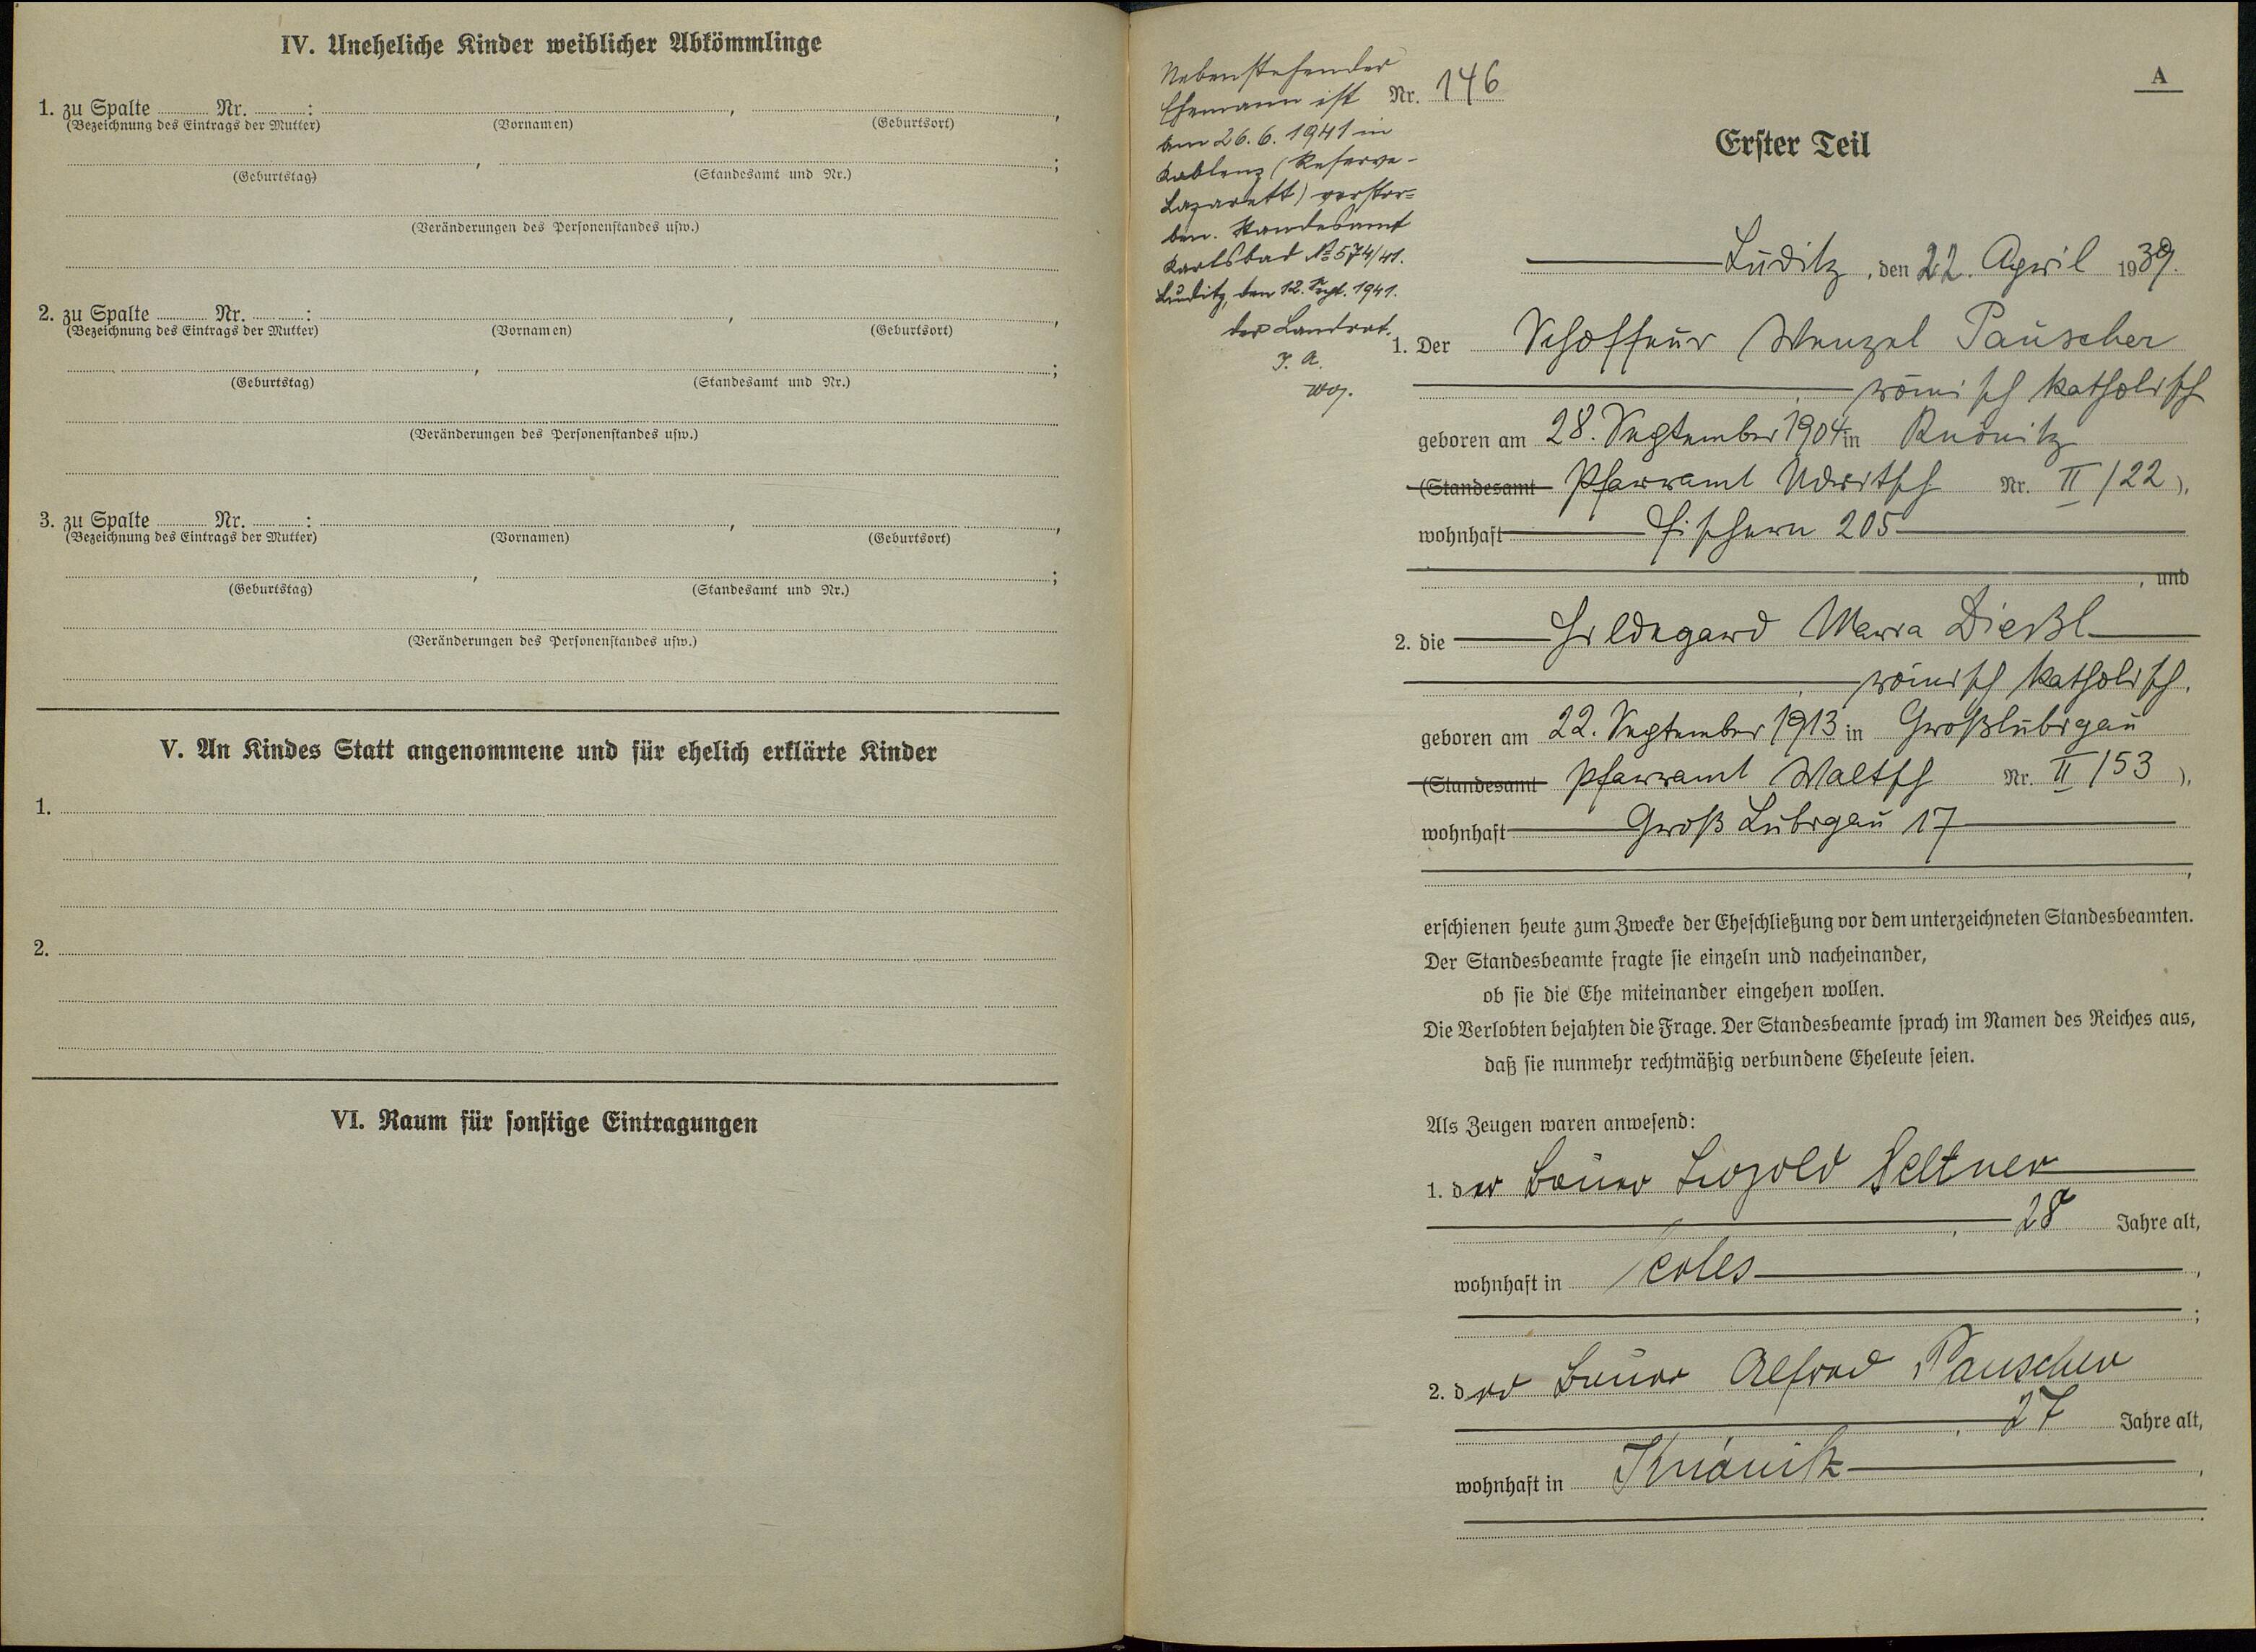 IV. Uneheliche Kinder weiblicher Abkömmlinge
1. zu Spalte Nr. : , ,
(Bezeichnung des Eintrags der Mutter) (Vornamen) (Geburtsort)
, ;
(Geburtstag) (Standesamt und Nr.)
(Veränderungen des Personenstandes usw.)
2. zu Spalte Nr. : , ,
(Bezeichnung des Eintrags der Mutter) (Vornamen) (Geburtsort)
, ;
(Geburtstag) (Standesamt und Nr.)
(Veränderungen des Personenstandes usw.)
3. zu Spalte Nr. : , ,
(Bezeichnung des Eintrags der Mutter) (Vornamen) (Geburtsort)
, ;
(Geburtstag) (Standesamt und Nr.)
(Veränderungen des Personenstandes usw.)
V. An Kindes Statt angenommene und für ehelich erklärte Kinder
1.
2.
VI. Raum für sonstige Eintragungen
Nebenstehender
Ehemann ist
am 26. 6. 1941 in
Koblenz (Reserve-
Lazarett) verstor=
ben. Standesamt
Karlsbad No 574/41.
Luditz, den 12. Sept. 1941.
der Landrat.
J. A.
A
Nr. 146
Erster Teil
Luditz, den 22. April 1939.
1. Der Schoffeur Wenzel Pauscher
, römisch katholisch
geboren am 28. September 1904 in Knönitz
(Standesamt Pfarramt Udritsch Nr. II/22),
wohnhaft Fischern 205
, und
2. die Hildegard Maria Dießl
, römisch katholisch.
geboren am 22. September 1913 in Großlubigau
(Standesamt Pfarramt Waltsch Nr. II/53),
wohnhaft Groß Lubigau 17
,
erschienen heute zum Zwecke der Eheschließung vor dem unterzeichneten Standesbeamten.
Der Standesbeamte fragte sie einzeln und nacheinander,
ob sie die Ehe miteinander eingehen wollen.
Die Verlobten bejahten die Frage. Der Standesbeamte sprach im Namen des Reiches aus,
daß sie nunmehr rechtmäßig verbundene Eheleute seien.
Als Zeugen waren anwesend:
1. der Bauer Leopold Seltner
, 28 Jahre alt,
wohnhaft in ,
;
2. der Bauer Alfred Pauscher
, 27 Jahre alt,
wohnhaft in Knönitz,
.